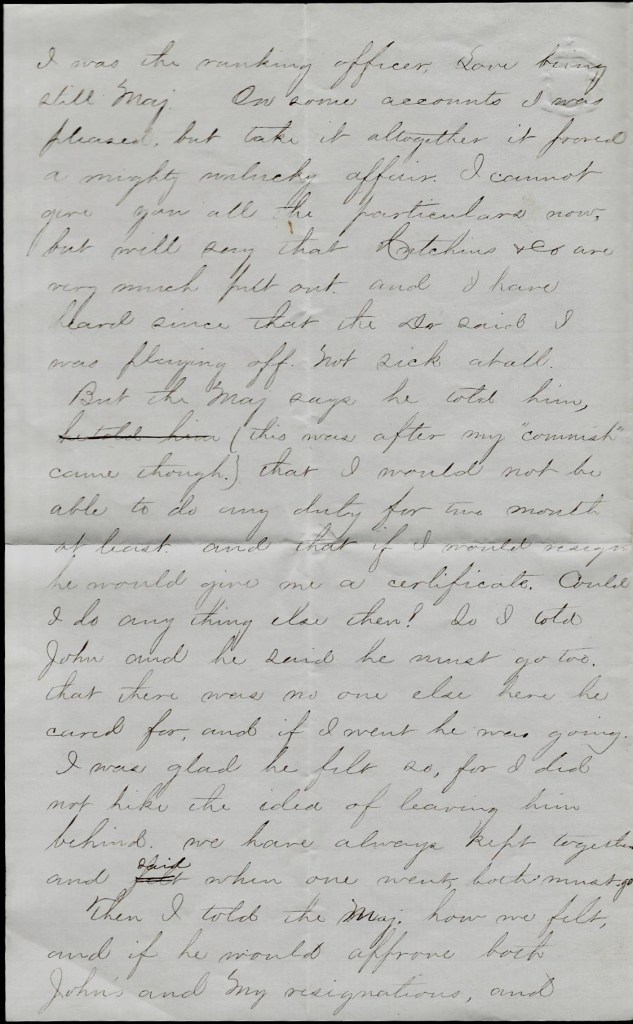 I was the ranking officer, Love being
still Maj. On some accounts I was
pleased, but take it altogether it proved
a mighty unlucky affair. I cannot
give you all the particulars now,
but will say that Hutchins & Co are
very much put out. and I have
heard since that the Dr said I
was playing off. Not sick atall.
But the Maj says he told him,
he told him (this was after my "commish"
came though.) that I would not be
able to do any duty for two month
at least. and that if I would resign
he would give me a certificate. Could
I do any thing else then? So I told
John and he said he must go too.
that there was no one else here he
cared for, and if I went he was going.
I was glad he felt so, for I did
not like the idea of leaving him
behind. we have always kept together
and felt said when one went, both must go
Then I told the Maj. how we felt,
and if he would approve both
John's and My resignations, and